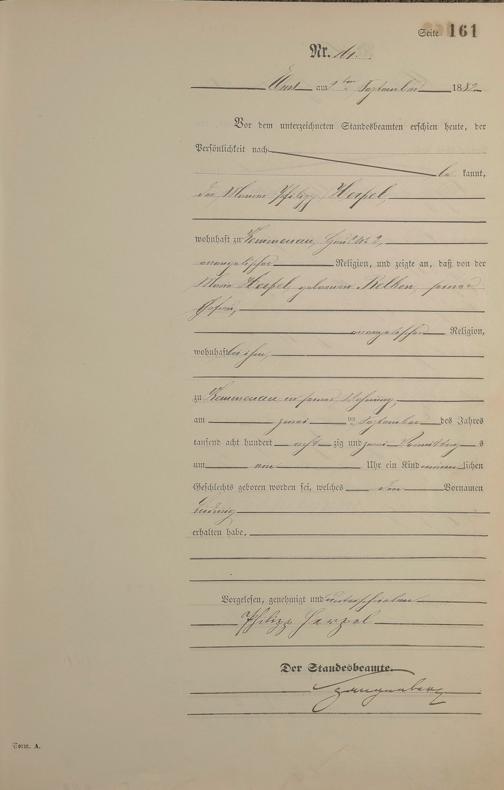 Seite 161
Nr.
Ems am ten September 1882
Vor dem unterzeichneten Standesbeamten erschien heute, der
Persönlichkeit nach
be kannt,
der Maurer Philipp Hespel,
wohnhaft zu Kemmenau, Haus No 2,
evangelischer Religion, und zeigte an, daß von der
Maria Hespel geborenen seiner
Ehefrau,
evangelischer Religion,
wohnhaft bei ihm,
zu Kemmenau in seiner Wohnung,
am zwei ten September des Jahres
tausend acht hundert acht zig und zwei Vormittag s
um ein Uhr ein Kind männ lichen
Geschlechts geboren worden sei, welches den Vornamen
Ludwig
erhalten habe,
Vorgelesen, genehmigt und unterschrieben
Philipp
Der Standesbeamte.
Form. A.